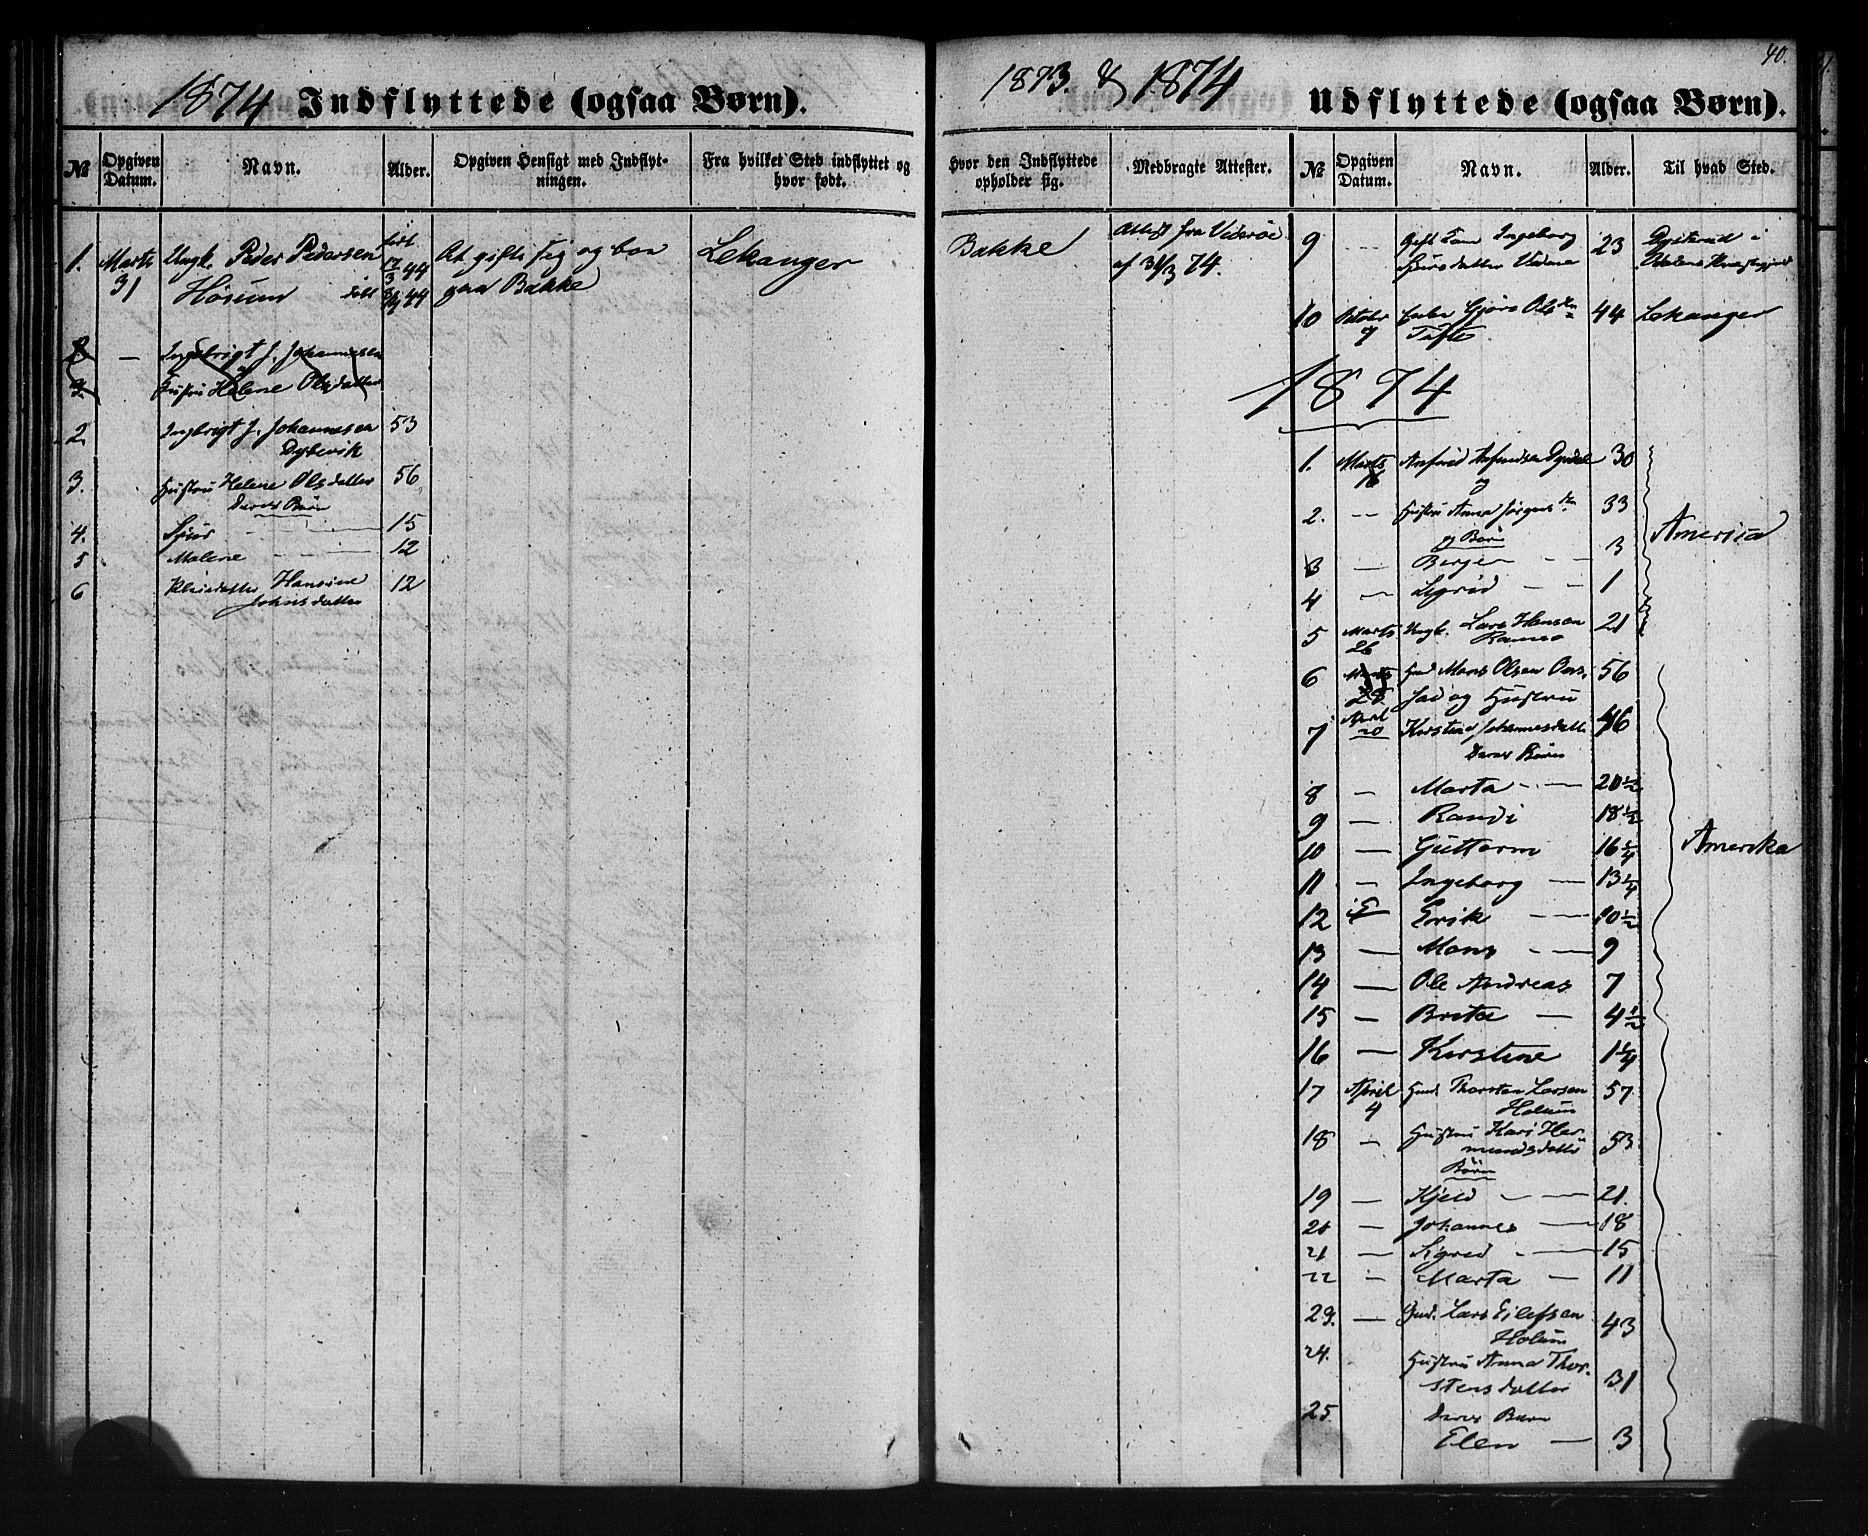 40.
1874 Indflyttede (ogsaa Børn).
№ Opgiven Datum. Navn. Alder. Opgiven Hensigt med Indflytningen. Fra hvilket Sted indflyttet og hvor født.
1. Marts Ungk. Peder Pedersen født At gifte sig og bor Lekanger
31 44 paa Bakke
44
2 — Ingebrigt J. Johannesen
3. Hustru Helene Olsdatter
2. Ingbrigt J. Johannesen 53
Dybevik
3. Hustru Helene Olsdatter 56
Deres Børn
4. Sjur 15
5 Malene 12
6 Hansine 12
Johnsdatter
1873. & 1874 Udflyttede (ogsaa Børn).
Hvor den Indflyttede opholder sig. Medbragte Attester.
Bakke Attest fra
af 31/3 74.
№ Opgiven Datum. Navn. Alder. Til hvad Sted.
9 — Gift Ingeborg 23 i
10 Oktober Ols 44 Lekanger
9
1874
1. Marts 30
16 og
2. — Hustru Anna Jørgens 33
og Børn
3 — Berger 3
4 — Sigrid 1
America
5 Marts Ungk. Lars Hansen 21
26
6 Marts Gmd Mons Olsen 56
28 og Hustru
7 April Kirstine Johannesdatt. 46
20 Deres Børn
8 — Marta 20 1/2
9 — Randi 18 1/2
10 — Guttorm 16 1/4
11 — Ingeborg 13 1/4
12 Erik 10 1/2
13 — Mons 9
14 — Ole Andreas 7
15 — Brita 4 1/2
16 — Kirstine 1 1/4
Amerika
17 April Gmd. Thorsten Larsen 57
4 Holum
18 — Hustru Kari Her- 53
mundsdatter
Børn
19 — Kjeld 21.
20 — Johannes 18
21 — Sigrid 15
22 — Marta 11
29. — Gmd. Lars Eilefsen 43
Holum
24. Hustru Anna Thor-
stensdatter 31
25. Deres Barn
Elen — 3